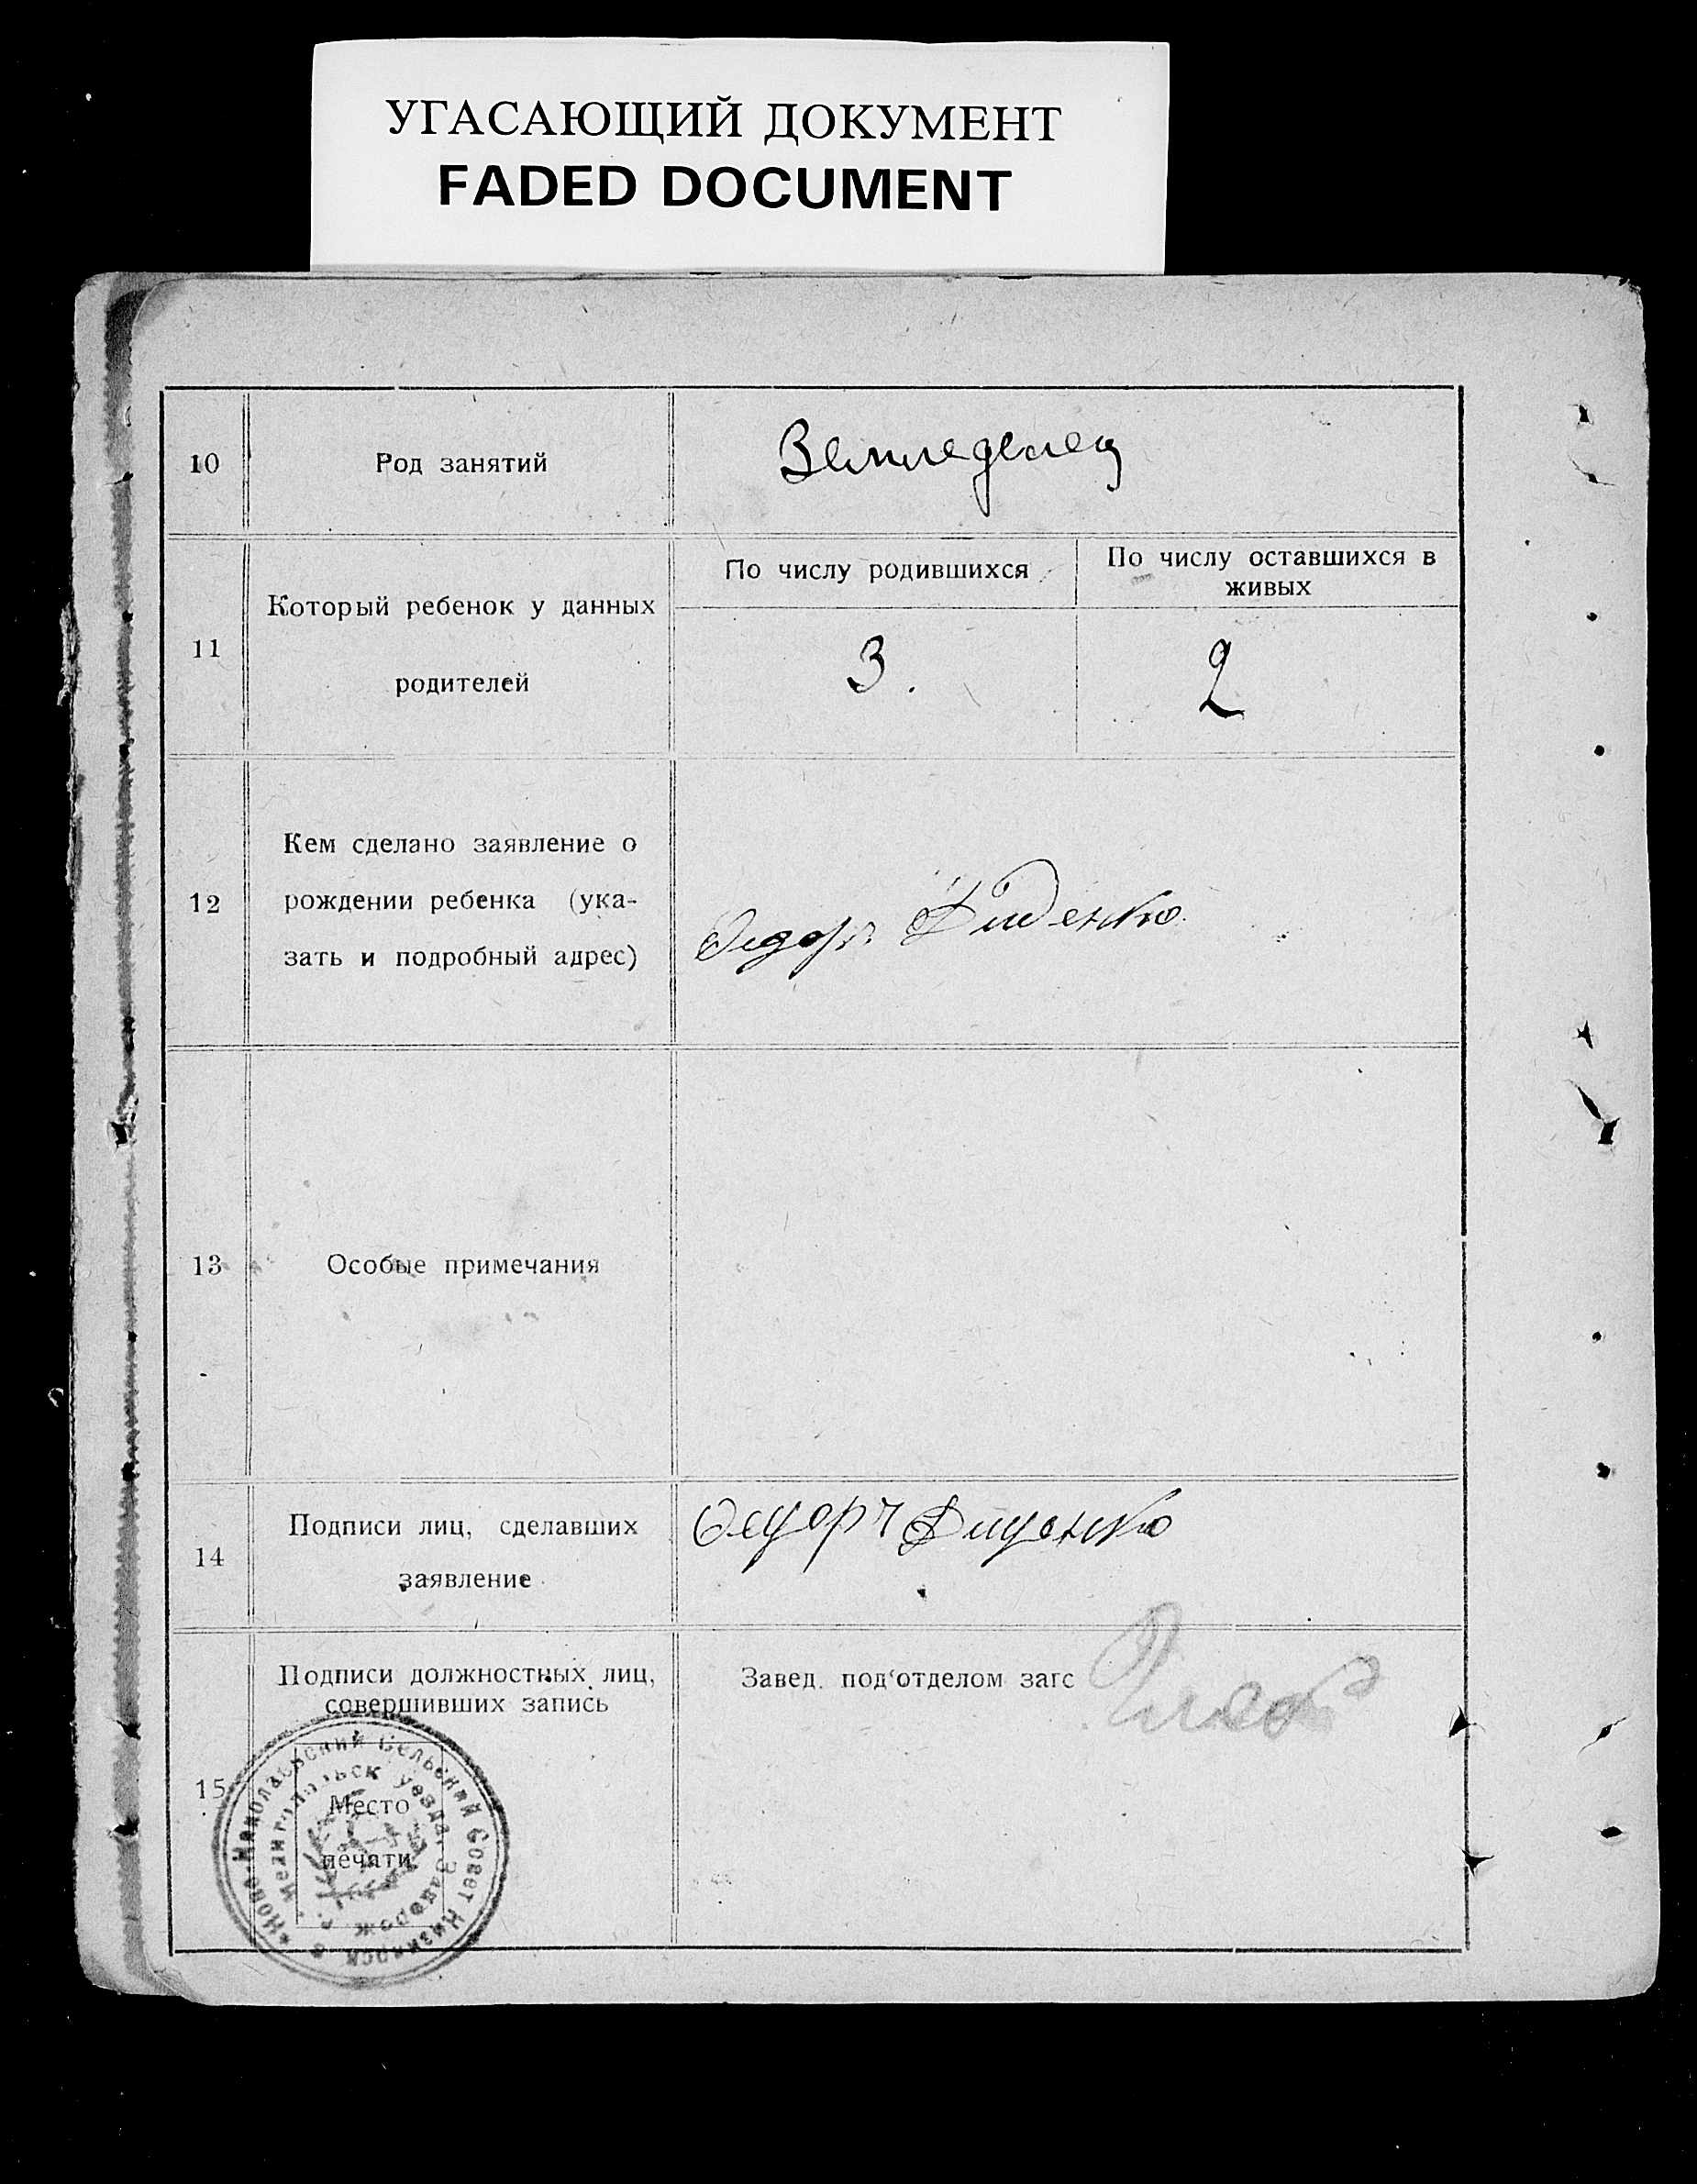 УГАСАЮЩИЙ ДОКУМЕНТ
FADED DOCUMENT
10
Род занятий
Земледелец
11
Который ребенок у данных
родителей
По числу родившихся
По числу оставшихся в
живых
3.
2
12
Кем сделано заявление о
рождении ребенка (ука-
зать и подробный адрес)
Федоръ Диденко
13
Особые примечания
14
Подписи лиц, сделавших
заявление
Федоръ Диденко
15
Подписи должностных лиц,
совершивших запись
Завед. под'отделом загс
Место
печати
Ново-Николаевский Сельский Совет Низярск
Мелитопольск уезда, Запорож.